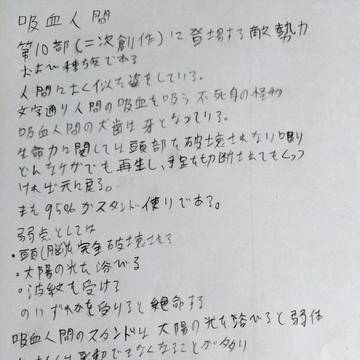 吸血人間
第10部(二次創作)に登場する敵勢力
および種族である
人間によく似た姿をしている。
文字通り人間の吸血を吸う不死身の怪物
吸血人間の犬歯は牙となっている。
生命力に関しては頭部を破壊されない限り
どんなケガでも再生し、手足を切断されてもくっつ
ければ元に戻る。
また95%がスタンド使いである。
弱点としては
・頭(脳)を完全破壊される
・太陽の光を浴びる
・波紋を受ける
のいずれかを受けると絶命する
吸血人間のスタンドは太陽の光を浴びると弱体
発動できなくなることが多い